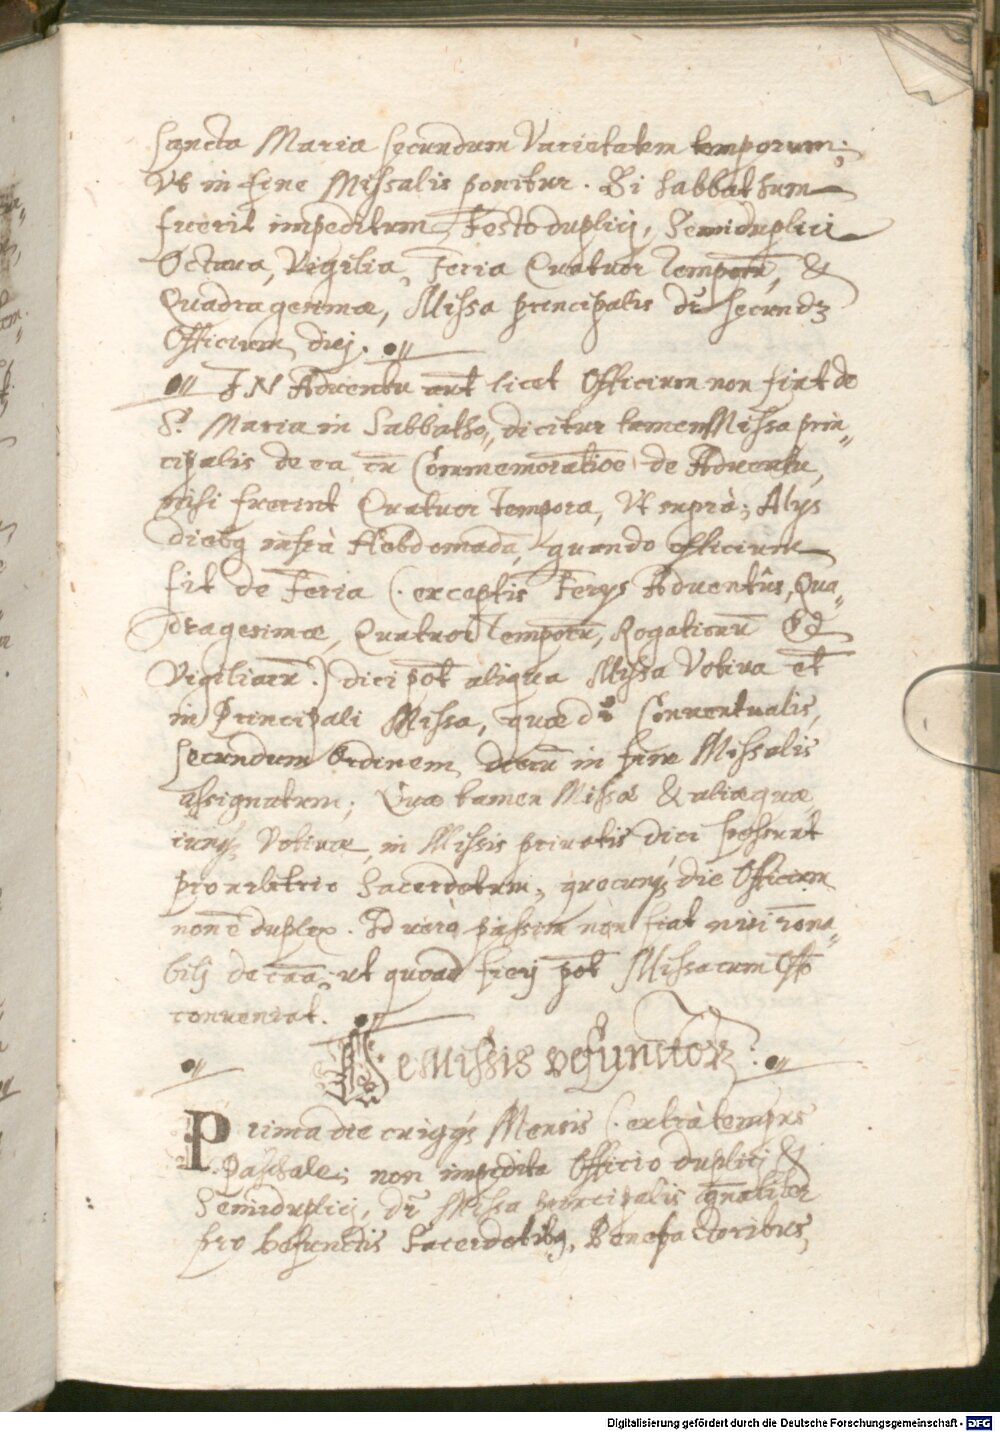 Sancta Maria secundum Varietatem temporum;
Vt in fine Missalis ponitur. Si Sabbathum
fuerit impeditum, Festo duplicj, Semiduplici
Octaua, Vigilia, Feria Quatuor Temporũ, &
Quadragesimæ, Missa principalis dr̃ secundʒ
Officium diej.
IN Aduentu aut̃ licet Officium non fiat de
S. Maria in Sabbatho, dicitur tamen Missa prin„
cipalis de ea, cũ Commemoratiõe de Aduentu,
nisi fuerint Quatuor Tempora, Vt suprà; Alijs
diebꝫ infrà Hebdomadã, quando officium
fit de Feria (. exceptis Ferijs Aduentûs, Qua„
dragesimæ, Quatuor Temporũ, Rogationũ Et
Vigiliarũ.) dici pot̃ aliqua Missa Votiua et̃
in Principali Missa, quæ dr̃ Conuentualis,
secundum Ordinem, dierũ in fine Missalis
assignatum; Quæ tamen Missæ & aliæ quæ„
cunqꝫ Votiuæ, in Missis priuatis dici possunt
pro arbitrio Sacerdotum, quocunqꝫ die Officium
non ẽ duplex. Id uerò passim non fiat nisi rõna„
bilj de cãa; ut quoad fierj pot̃ Missa cum Offo
conueniat.
De Missis defunctorʒ:
Prima die cuiusqꝫ Mensis (. extrà tempus
Paschale; non impedita Officio duplicj &
Semiduplicj, dr̃ Missa principalis gñaliter
pro Defunctis Sacerdotibꝫ, Benefactoribus,
Digitalisierung gefördert durch die Deutsche Forschungsgemeinschaft - DFG